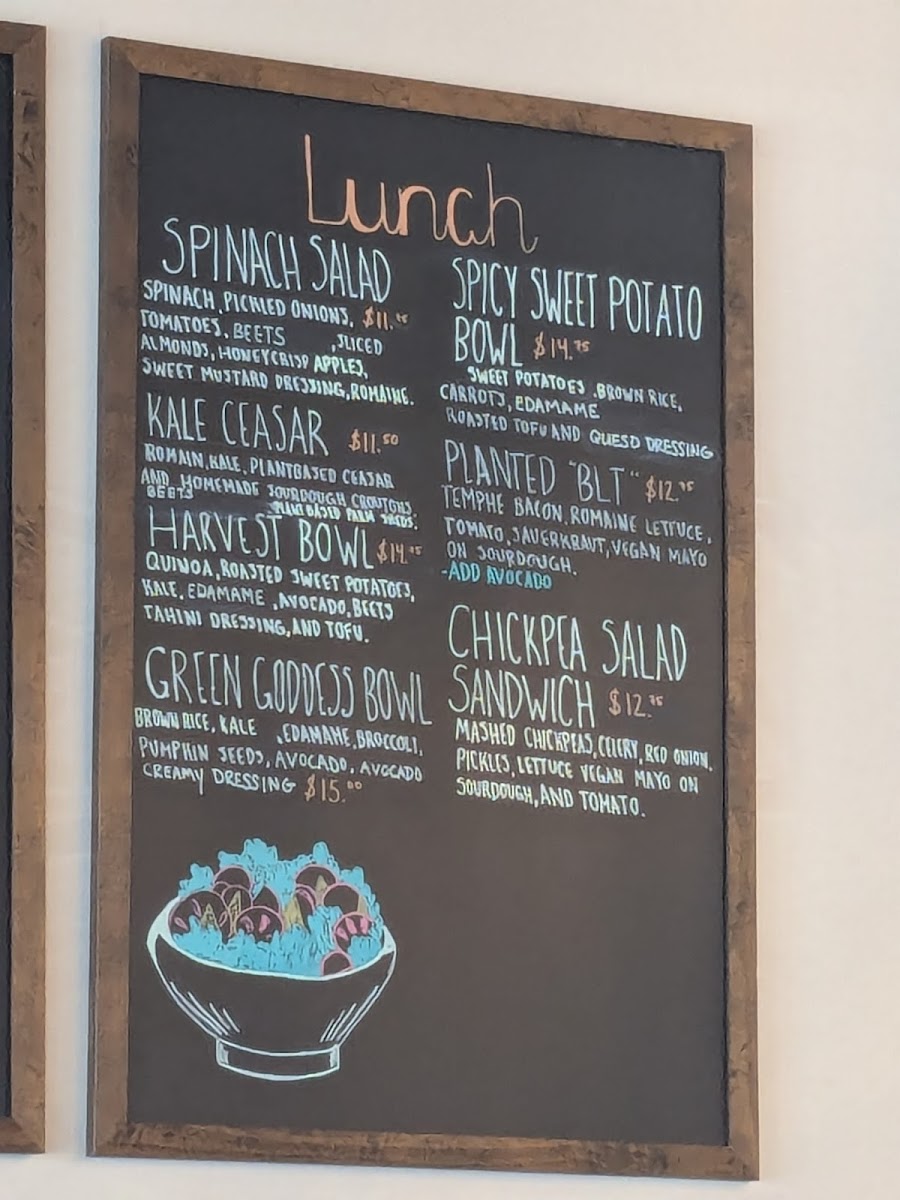 Lunch
SPINACH SALAD
SPINACH, PICKLED ONIONS, $11.
TOMATOES, BEETS, SLICED
ALMONDS, HONEYCRISP APPLES,
SWEET MUSTARD DRESSING, ROMAINE.
KALE CEASAR $11.50
ROMAIN, KALE, PLANTBASED CEASAR
AND HOMEMADE SOURDOUGH CROUTONS.
BEETS PLANT BASED PARM SHEDS.
HARVEST BOWL $14.
QUINOA, ROASTED SWEET POTATOES,
KALE, EDAMAME, AVOCADO, BEETS
TAHINI DRESSING, AND TOFU.
GREEN GODDESS BOWL
BROWN RICE, KALE, EDAMAME, BROCCOLI,
PUMPKIN SEEDS, AVOCADO, AVOCADO
CREAMY DRESSING $15.00
SPICY SWEET POTATO
BOWL $14.75
SWEET POTATOES, BROWN RICE,
CARROTS, EDAMAME
ROASTED TOFU AND QUESO DRESSING
PLANTED "BLT" $12.75
TEMPHE BACON, ROMAINE LETTUCE,
TOMATO, SAUERKRAUT, VEGAN MAYO
ON SOURDOUGH.
-ADD AVOCADO
CHICKPEA SALAD
SANDWICH $12.75
MASHED CHICKPEAS, CELERY, RED ONION,
PICKLES, LETTUCE VEGAN MAYO ON
SOURDOUGH, AND TOMATO.